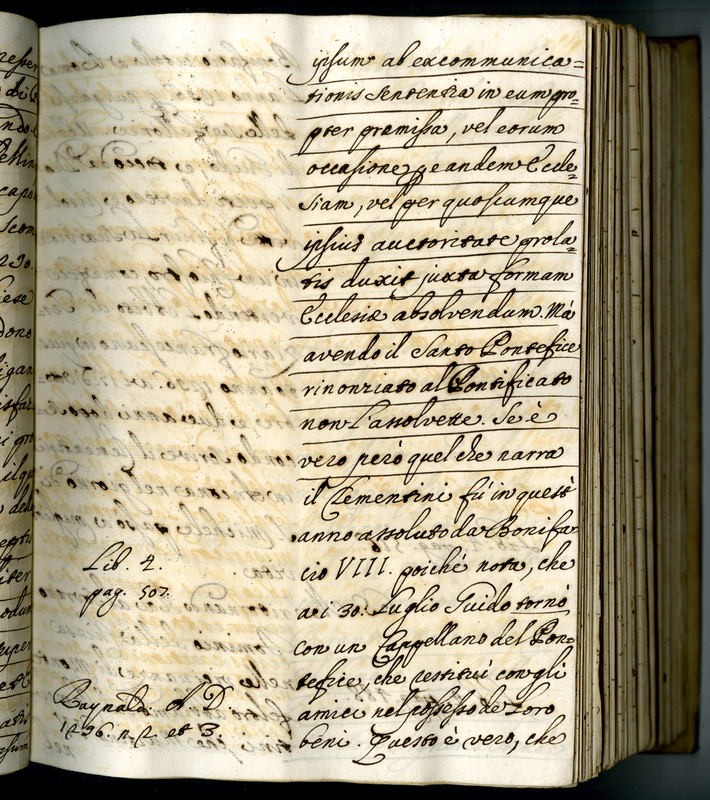 ipsum ab excommunica=
tionis sententia in eum pro=
pter premissa, vel eorum
occasione per eandem Eccle=
siam, vel per quoscumque
ipsius auctoritate prola=
tis duxit juxta formam
Ecclesiæ absolvendum. Mà
avendo il Santo Pontefice
rinonziato al Pontificato
non l'assolvette. Se è
vero però quel che narra
il Clementini fù in quest
anno assoluto da Bonifa=
cio VIII. poiché nota, che
a i 30. Luglio Guido tornò
con un Cappellano del Pon=
tefice, che restituì con gli
amici nel possesso de loro
beni. Questo è vero, che
Lib. 4.
pag. 507.
Raynald. A. D.
1296. n. 2. et 3.